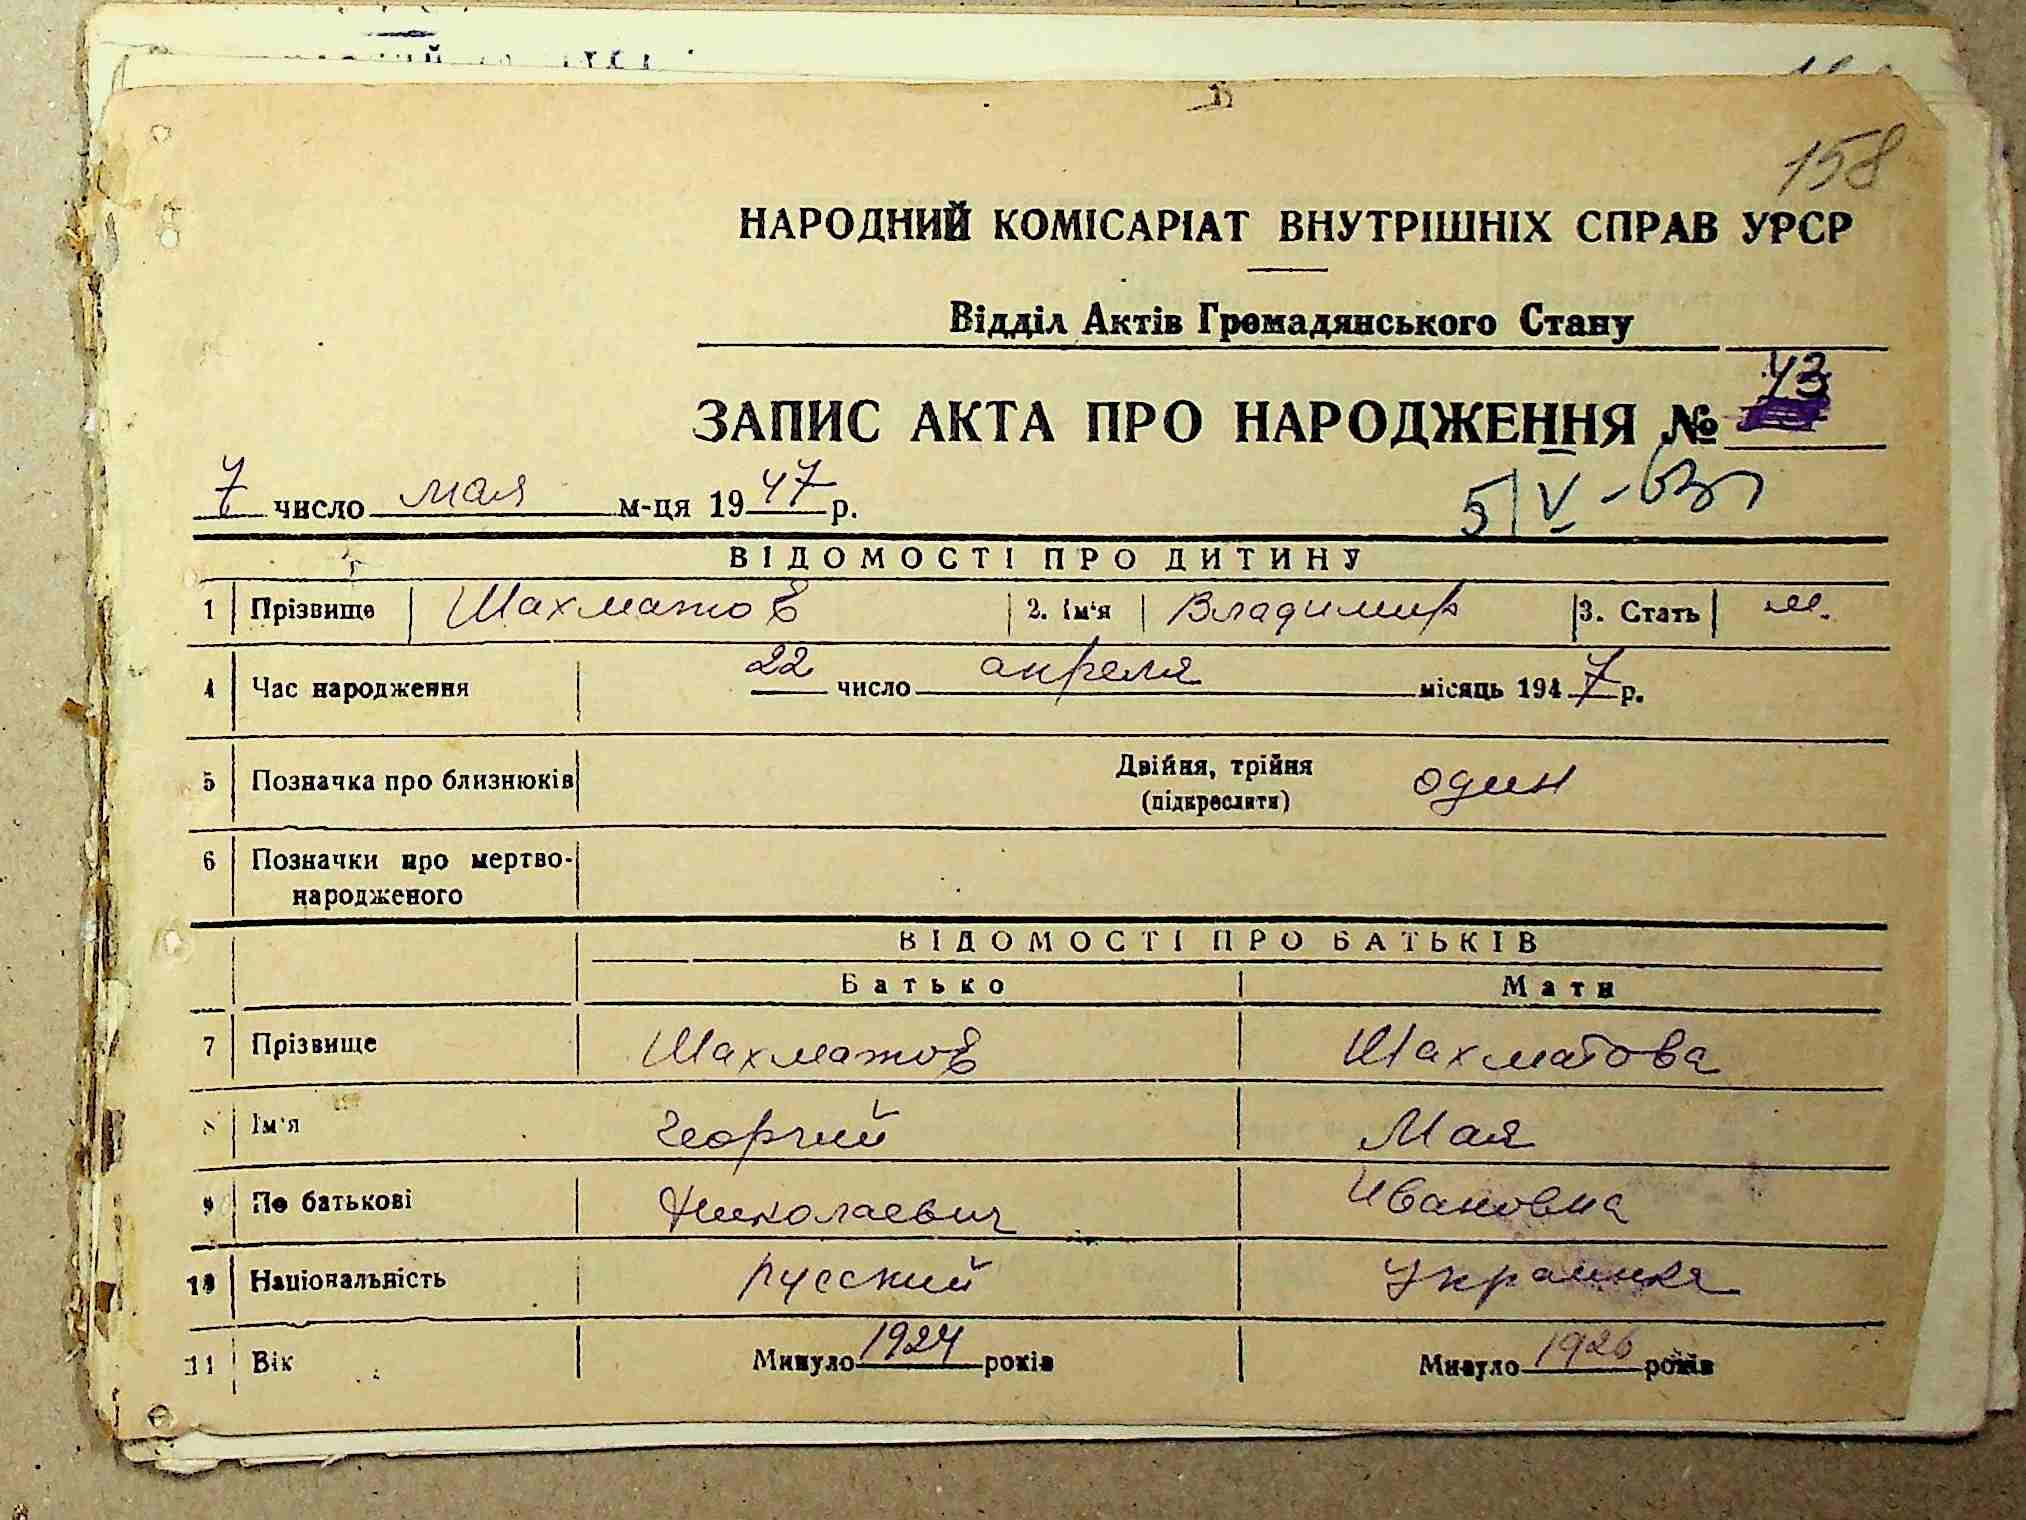 158
НАРОДНИЙ КОМІСАРІАТ ВНУТРІШНІХ СПРАВ УРСР
Відділ Актів Громадянського Стану
ЗАПИС АКТА ПРО НАРОДЖЕННЯ № 43
7 число мая м-ця 1947 р.
5/V-63г
ВІДОМОСТІ ПРО ДИТИНУ
1 Прізвище Шахматов 2. Ім'я Владимир 3. Стать м.
4 Час народження 22 число апреля місяць 1947 р.
5 Позначка про близнюків Двійня, трійня (підкреслити) один
6 Позначки про мертво-
народженого
ВІДОМОСТІ ПРО БАТЬКІВ
Батько Мати
7 Прізвище Шахматов Шахматова
8 Ім'я Георгий Мая
9 По батькові Николаевич Ивановна
10 Національність Русский Украинка
11 Вік Минуло 1924 років Минуло 1926 років